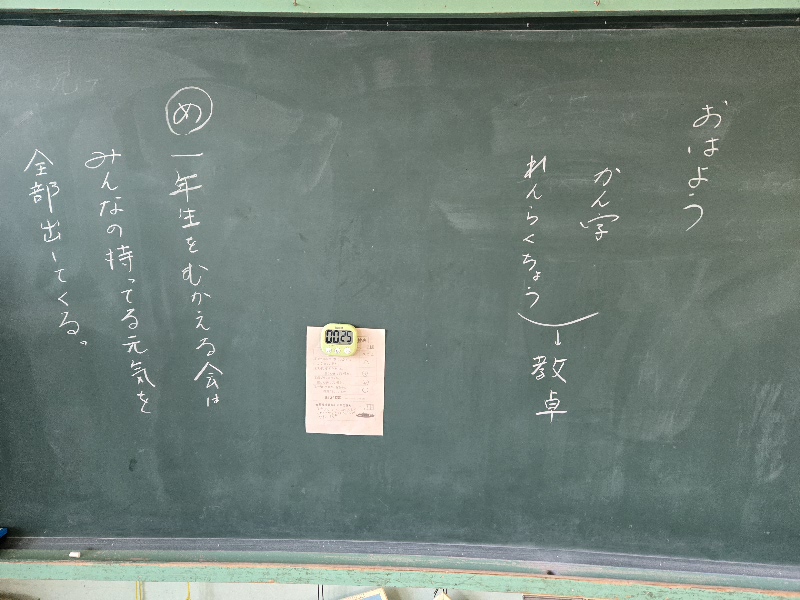 おはよう
かん字
れんらくちょう
↓教卓
め 一年生をむかえる会は
みんなの持ってる元気を
全部出してくる。
00 25